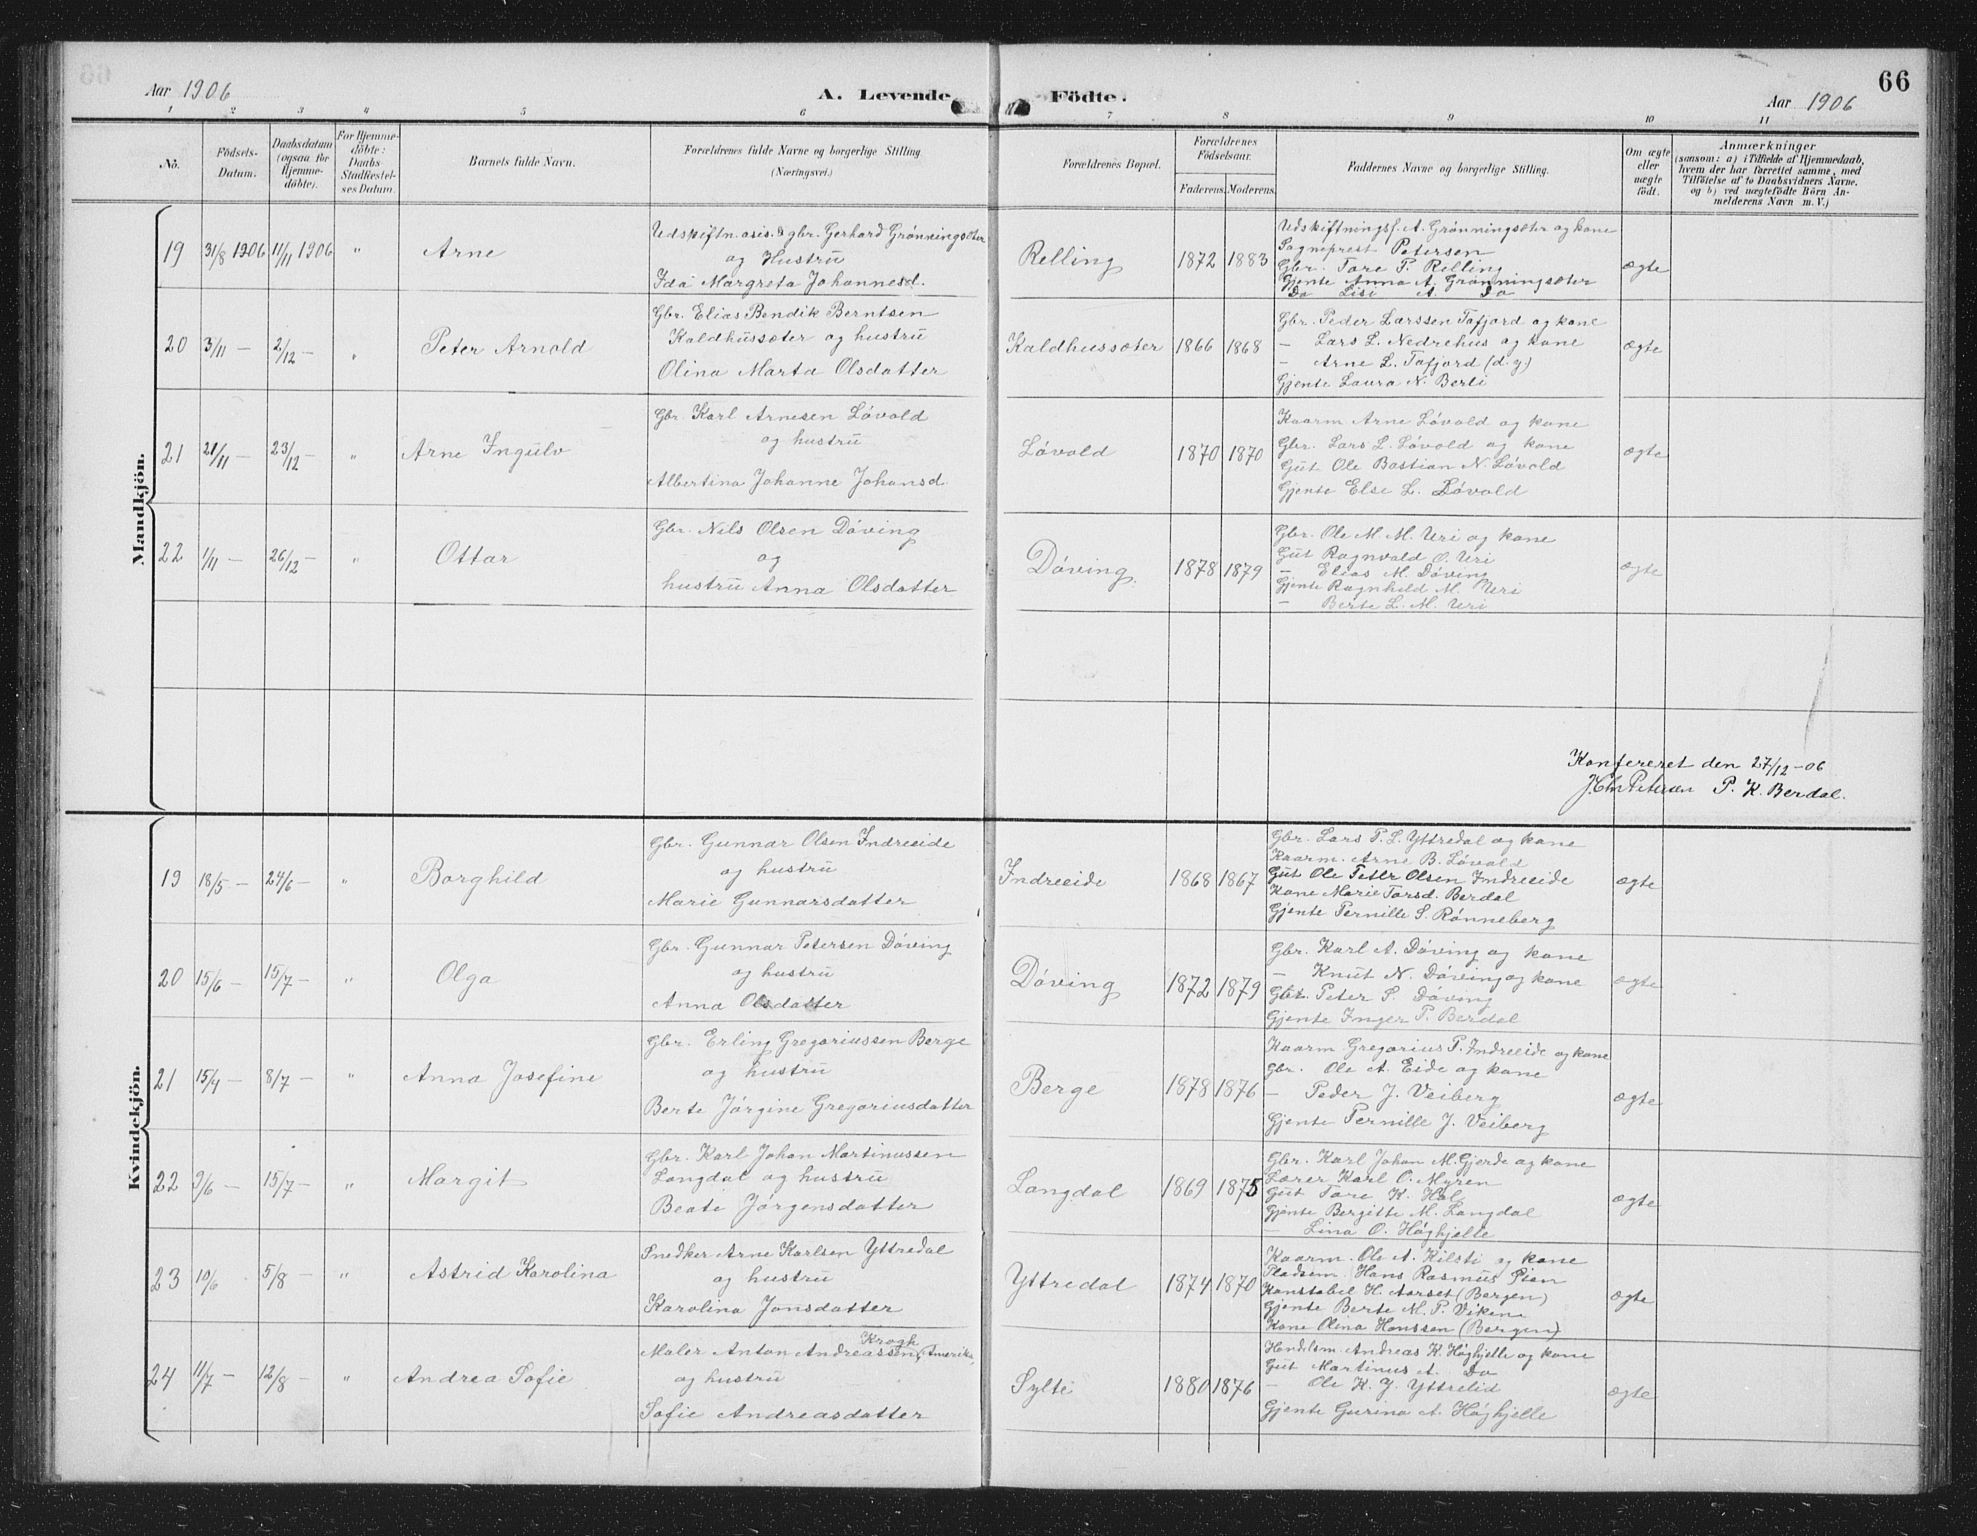 66
Aar 1906
A. Levende Födte.
Aar 1906
1 2 3 4 5 6 7 8 9 10 11
No.
Födsels-Datum.
Daabsdatum (ogsaa for Hjemme-döbte).
For Hjemme-döbte: Daabs Stadfæstel-ses Datum.
Barnets fulde Navn.
Forældrenes fulde Navne og borgerlige Stilling
(Næringsvei.)
Forældrenes Bopæl.
Forældrenes Födselsaar.
Faderens. Moderens.
Faddernes Navne og borgerlige Stilling.
Om ægte eller uægte födt.
Anmærkninger
(saasom: a) i Tilfælde af Hjemmedaab,
hvem der har forrettet samme, med
Tilföielse af to Daabsvidners Navne.
og b) ved uægtefödte Börn An-
melderens Navn m. V.)
Mandkjön.
19 31/8 1906 11/11 1906 " Arne
Udskiftn. asis. & gbr. Gerhard Grønningsæter
og Hustru
Ida Margreta Johannesd.
Relling 1872 1883
Udskiftningsf. A. Grønningsæter og kone
Sogneprest Petersen
Gbr. Tore P. Relling
Gjente Anna A. Grønningsæter
Do Lisi A. Do
ægte
20 3/11 — 2/12 — " Peter Arnold
Gbr. Elias Bendik Berntsen
Kaldhussæter og hustru
Olina Marta Olsdatter
Kaldhussæter 1866 1868
Gbr. Peder Larssen Tafjord og kone
— Lars L. Nedrehus og kone
— Arne L. Tafjord (d.y)
Gjente Laura N. Berli
ægte
21 21/11 — 23/12 — " Arne Ingulv
Gbr. Karl Arnesen Løvold
og hustru
Albertina Johanne Johansd.
Løvold 1870 1870
Kaarm Arne Løvold og kone
Gbr. Lars L. Løvold og kone
Gut Ole Bastian N. Løvold
Gjente Else L. Løvold
ægte
22 1/11 — 26/12 — " Ottar
Gbr. Nils Olsen Døving
og
hustru Anna Olsdatter
Døving. 1878 1879
Gbr. Ole M. M. Uri og kone
Gut Ragnvald O. Uri
— Elias M. Døving
Gjente Ragnhild M. Uri
— Berte L. M. Uri
ægte
Konfereret den 27/12 – 06
J. Chr Petersen P. K. Berdal.
Kvindekjön.
19 18/5 — 24/6 — " Borghild
Gbr. Gunnar Olsen Indreeide
og hustru
Marie Gunnarsdatter
Indreeide 1868 1867
Gbr. Lars P. L. Yttredal og kone
Kaarm. Arne B. Løvold
Gut Ole Peter Olsen Indreeide
Kone Marie Torsd. Berdal
Gjente Pernille S. Rønneberg
ægte
20 15/6 — 15/7 — " Olga
Gbr. Gunnar Petersen Døving
og hustru
Anna Olsdatter
Døving 1872 1879
Gbr. Karl A. Døving og kone
— Knut N. Døving og kone
Gbr. Peter P. Døving
Gjente Inger P. Berdal
ægte
21 15/4 — 8/7 — " Anna Josefine
Gbr. Erling Gregoriussen Berge
og hustru
Berte Jørgine Gregoriusdatter
Berge 1878 1876
Kaarm. Gregorius P. Indreeide og kone
Gbr. Ole A. Eide og kone
— Peder J. Veiberg
Gjente Pernille J. Veiberg
ægte
22 9/6 — 15/7 — " Margit
Gbr. Karl Johan Martinussen
Langdal og hustru
Beate Jørgensdatter
Langdal 1869 1875
Gbr. Karl Johan M. Gjerde og kone
Lærer Karl O. Myren
Gut Tore K. Hol
Gjente Bergitte M. Langdal
— Lina O. Høghjelle
ægte
23 10/6 5/8 — " Astrid Karolina
Snedker Arne Karlsen Yttredal
og hustru
Karolina Jonsdatter
Yttredal 1874 1870
Kaarm. Ole A. Kilsti og kone
Pladsem. Hans Rasmus Sian
Konstabel H. Aarset (Bergen)
Gjente Berte M. P. Viken
Kone Olina Hanssen (Bergen)
ægte
24 11/7 — 12/8 — " Andrea Sofie
Krogh
Maler Anton Andreassen, Amerika,
og hustru
Sofie Andreasdatter
Sylte 1880 1876
Handelsm. Andreas K. Høghjelle og kone
Gut Martinus A. Do
— Ole K. J. Yttrelid
Gjente Gurina A. Høghjelle
ægte